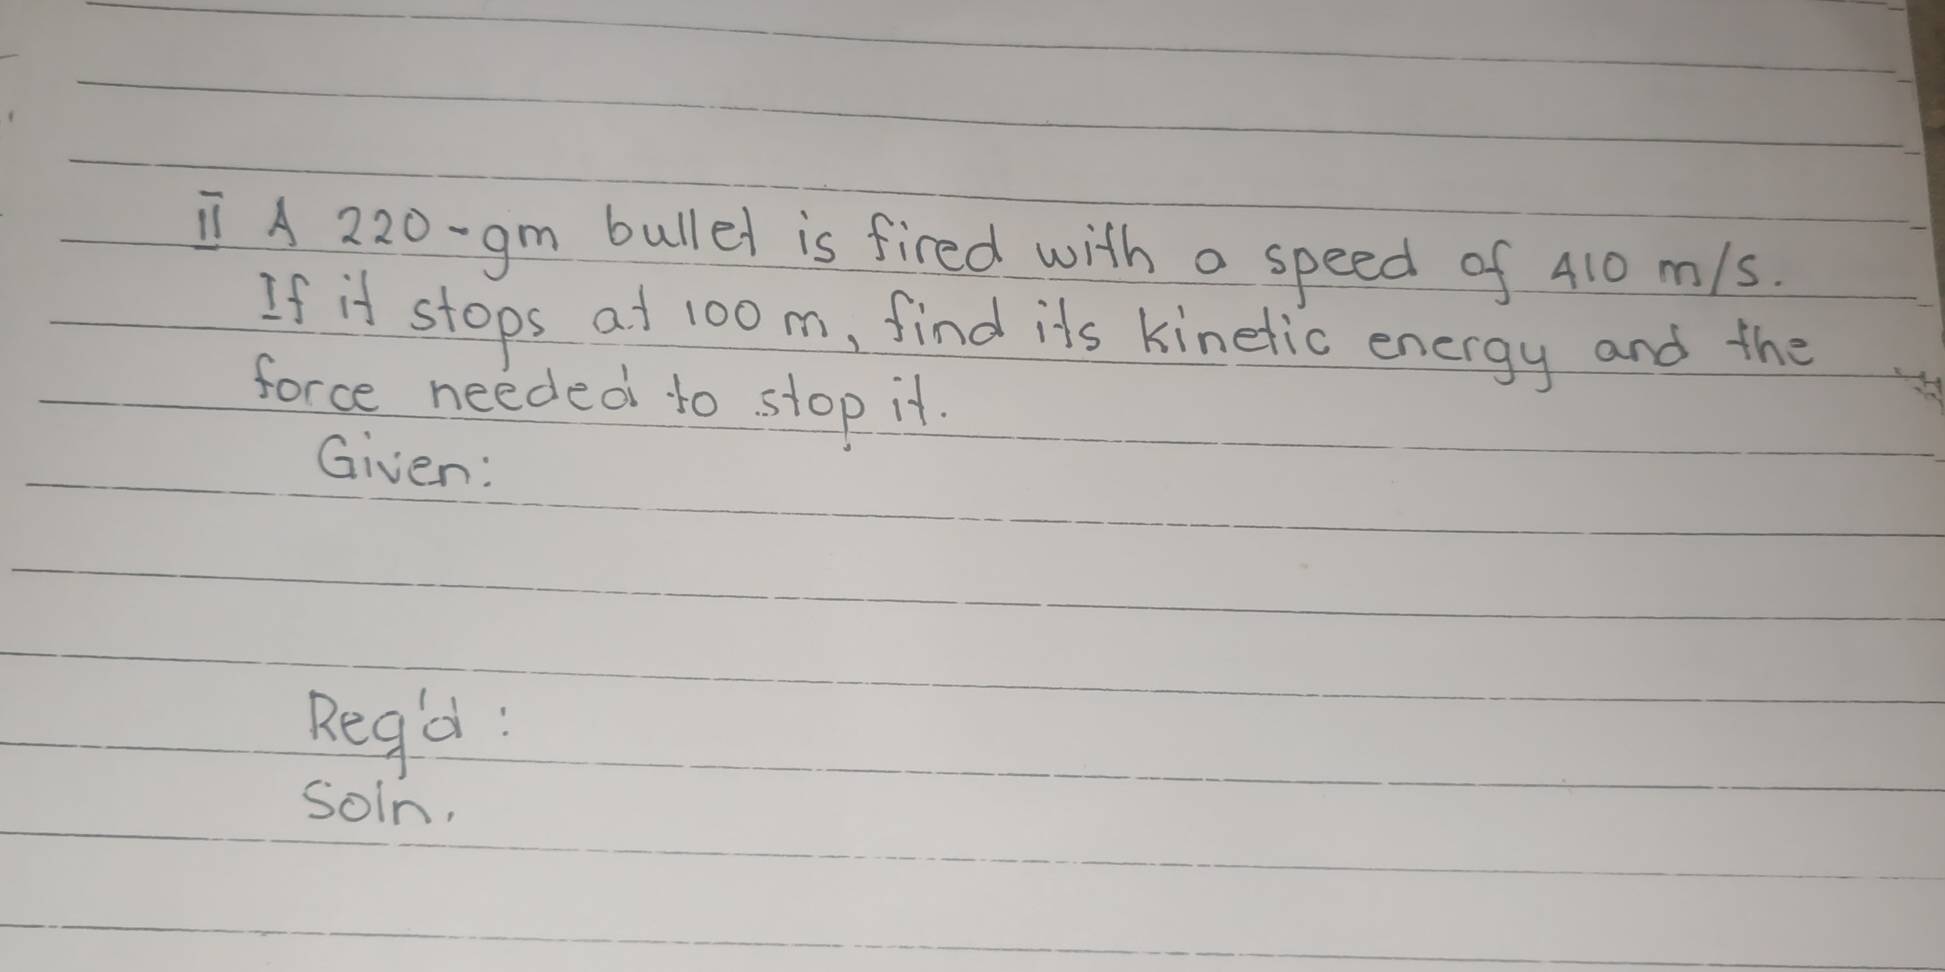 II A 220-gm bullet is fired with a speed of 410 m/s.
If it stops at 100 m, find its kinetic energy and the
force needed to stop it.
Given:
Req'd:
Soln.